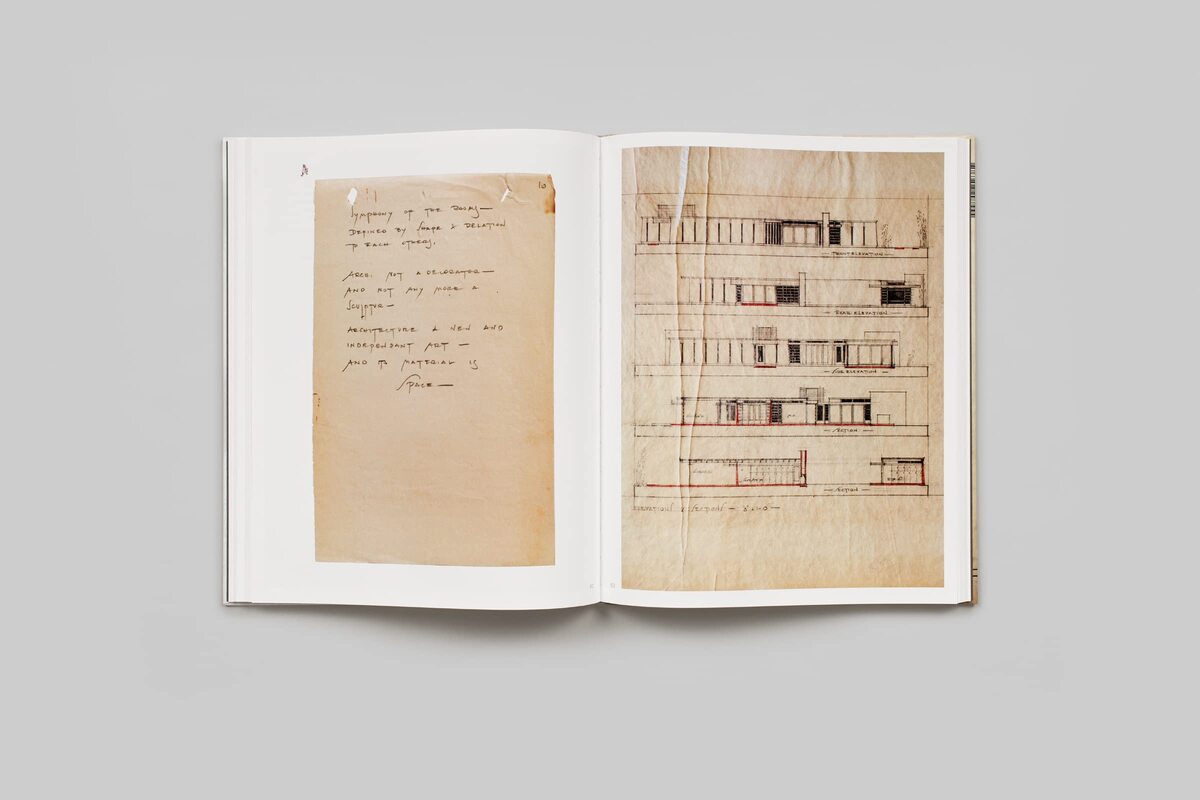 10
SYMPHONY OF THE ROOMS —
DEFINED BY SHAPE & RELATION
TO EACH OTHERS.
ARCH. NOT A DECORATOR —
AND NOT ANY MORE A
SCULPTUR —
ARCHITECTURE A NEW AND
INDEPENDANT ART —
AND ITS MATERIAL IS
SPACE —
— FRONT ELEVATION —
— REAR ELEVATION —
— SIDE ELEVATION —
— SECTION —
— SECTION —
ELEVATIONS & SECTIONS —